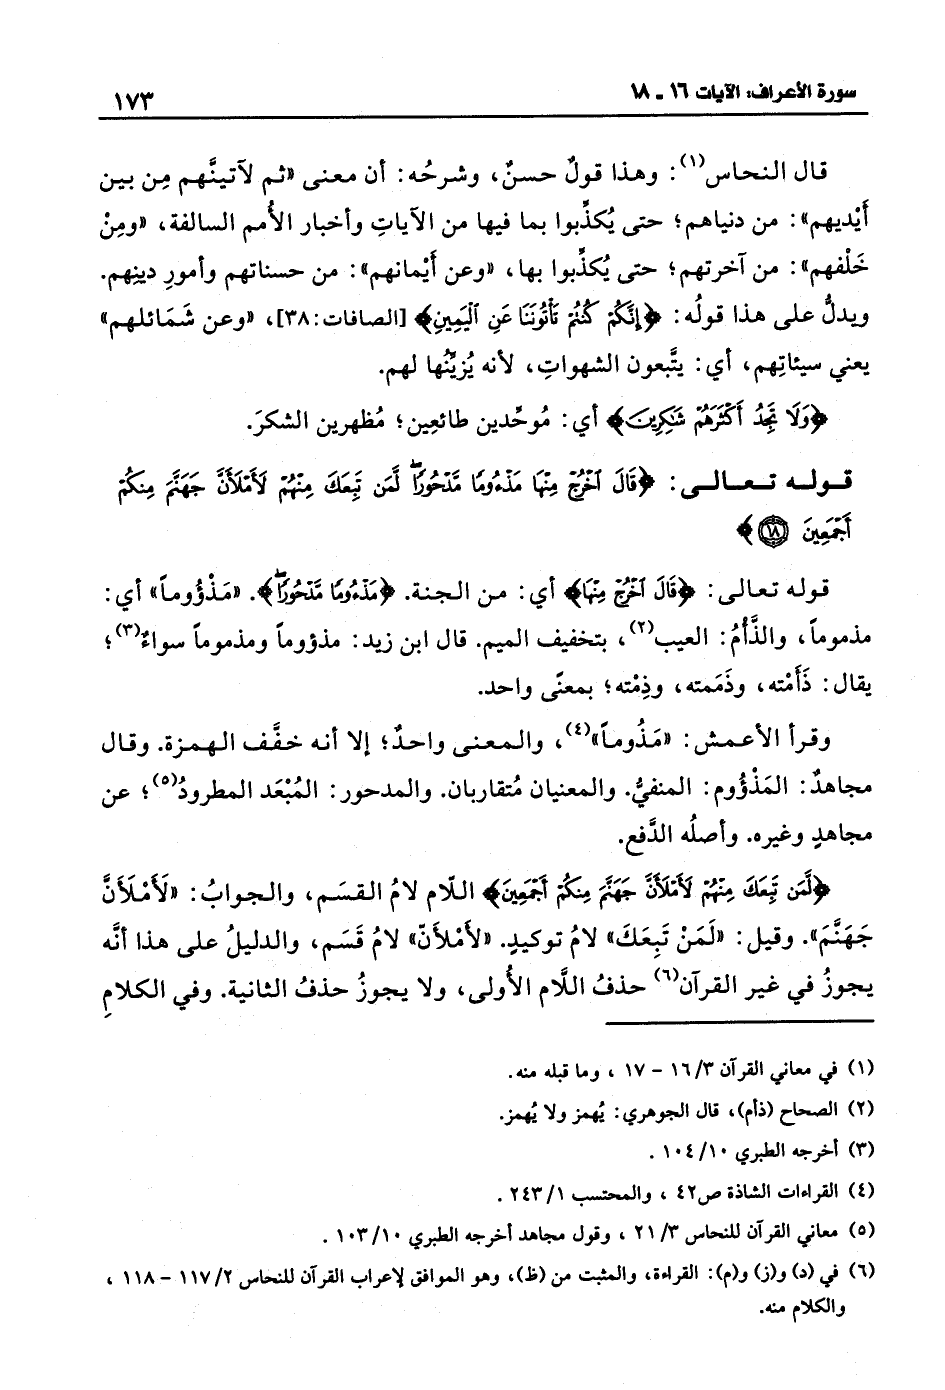 سورة الأعراف: الآيات ١٦ - ١٨
١٧٣
قال النحاس(١): وهذا قولٌ حسنٌ، وشرحُه: أن معنى «ثم لآتينَّهم مِن بين
أَيْديهم»: من دنياهم؛ حتى يُكذِّبوا بما فيها من الآياتِ وأخبار الأُمم السالفة، «ومِنْ
خَلْفهم»: من آخرتهم؛ حتى يُكذِّبوا بها، «وعن أَيْمانهم»: من حسناتهم وأمورِ دينِهم.
ويدلُّ على هذا قولُه: ﴿إِنَّكُمْ كُنتُمْ تَأْتُونَنَا عَنِ ٱلْيَمِينِ﴾ [الصافات: ٣٨]، «وعن شَمَائلهم»
يعني سيئاتِهم، أي: يتَّبعون الشهواتِ، لأنه يُزيِّنُها لهم.
﴿وَلَا تَجِدُ أَكْثَرَهُمْ شَٰكِرِينَ﴾ أي: مُوحِّدين طائعِين؛ مُظهرِين الشكرَ.
قوله تعالى: ﴿قَالَ ٱخْرُجْ مِنْهَا مَذْءُومًا مَّدْحُورًاۖ لَّمَن تَبِعَكَ مِنْهُمْ لَأَمْلَأَنَّ جَهَنَّمَ مِنكُمْ
أَجْمَعِينَ ۝١٨﴾
قوله تعالى: ﴿قَالَ ٱخْرُجْ مِنْهَا﴾ أي: من الجنة. ﴿مَذْءُومًا مَّدْحُورًاۖ﴾. «مَذْؤُوماً» أي:
مذموماً، والذَّأْمُ: العيب(٢)، بتخفيف الميم. قال ابن زيد: مذؤوماً ومذموماً سواءٌ(٣)؛
يقال: ذَأَمْته، وذَمَمته، وذِمْته؛ بمعنًى واحد.
وقرأ الأعمش: «مَذُوماً»(٤)، والمعنى واحدٌ؛ إلا أنه خفَّف الهمزة. وقال
مجاهدٌ: المَذْؤُوم: المنفيُّ. والمعنيان مُتقاربان. والمدحور: المُبْعَد المطرودُ(٥)؛ عن
مجاهدٍ وغيره. وأصلُه الدَّفع.
﴿لَّمَن تَبِعَكَ مِنْهُمْ لَأَمْلَأَنَّ جَهَنَّمَ مِنكُمْ أَجْمَعِينَ﴾ اللّام لامُ القسَم، والجوابُ: «لَأَمْلَأَنَّ
جَهَنَّمَ». وقيل: «لَمَنْ تَبِعَكَ» لامُ توكيدٍ. «لأَملأنّ» لامُ قَسَم، والدليلُ على هذا أنَّه
يجوزُ في غير القرآن(٦) حذفُ اللام الأُولى، ولا يجوزُ حذفُ الثانية. وفي الكلامِ
(١) في معاني القرآن ٣/ ١٦ - ١٧ ، وما قبله منه.
(٢) الصحاح (ذأم)، قال الجوهري: يُهمز ولا يُهمز.
(٣) أخرجه الطبري ١٠/ ١٠٤ .
(٤) القراءات الشاذة ص٤٢ ، والمحتسب ١/ ٢٤٣ .
(٥) معاني القرآن للنحاس ٣/ ٢١ ، وقول مجاهد أخرجه الطبري ١٠/ ١٠٣ .
(٦) في (د) و(ز) و(م): القراءة، والمثبت من (ظ)، وهو الموافق لإعراب القرآن للنحاس ٢/ ١١٧ - ١١٨ ،
والكلام منه.